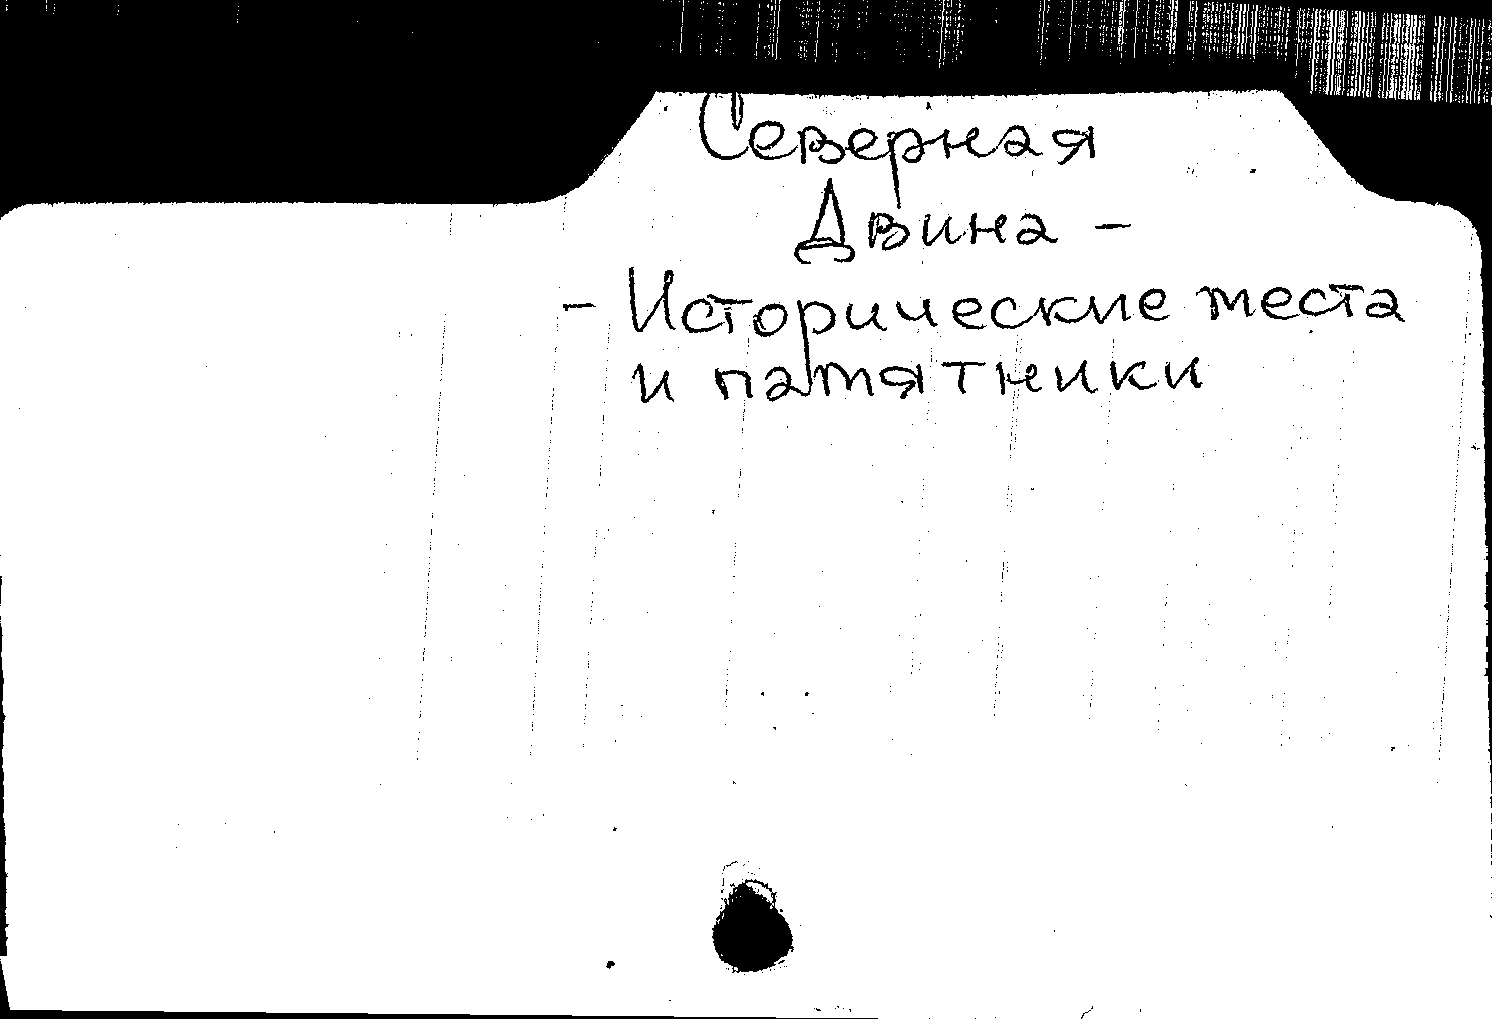 Северная
Двина -
- Исторические места
и памятники